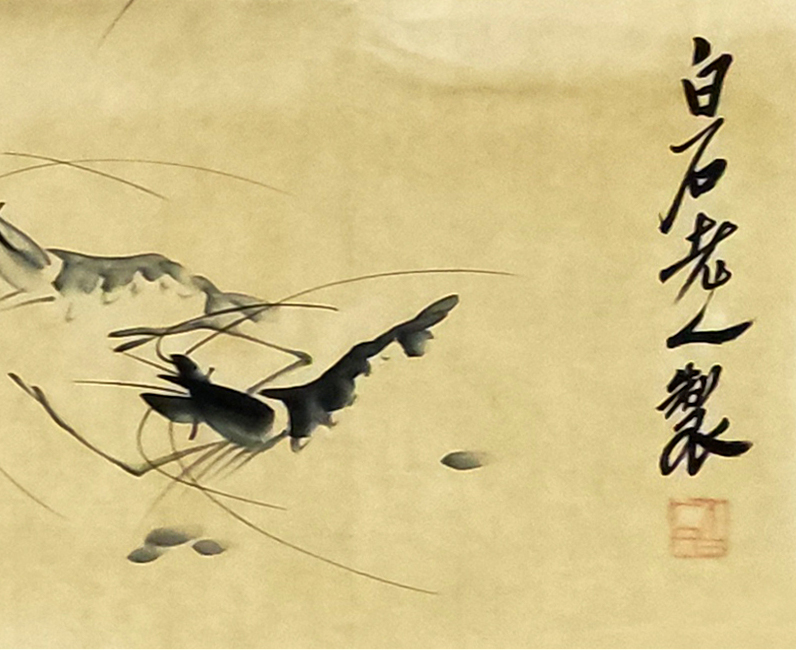 白石老人製